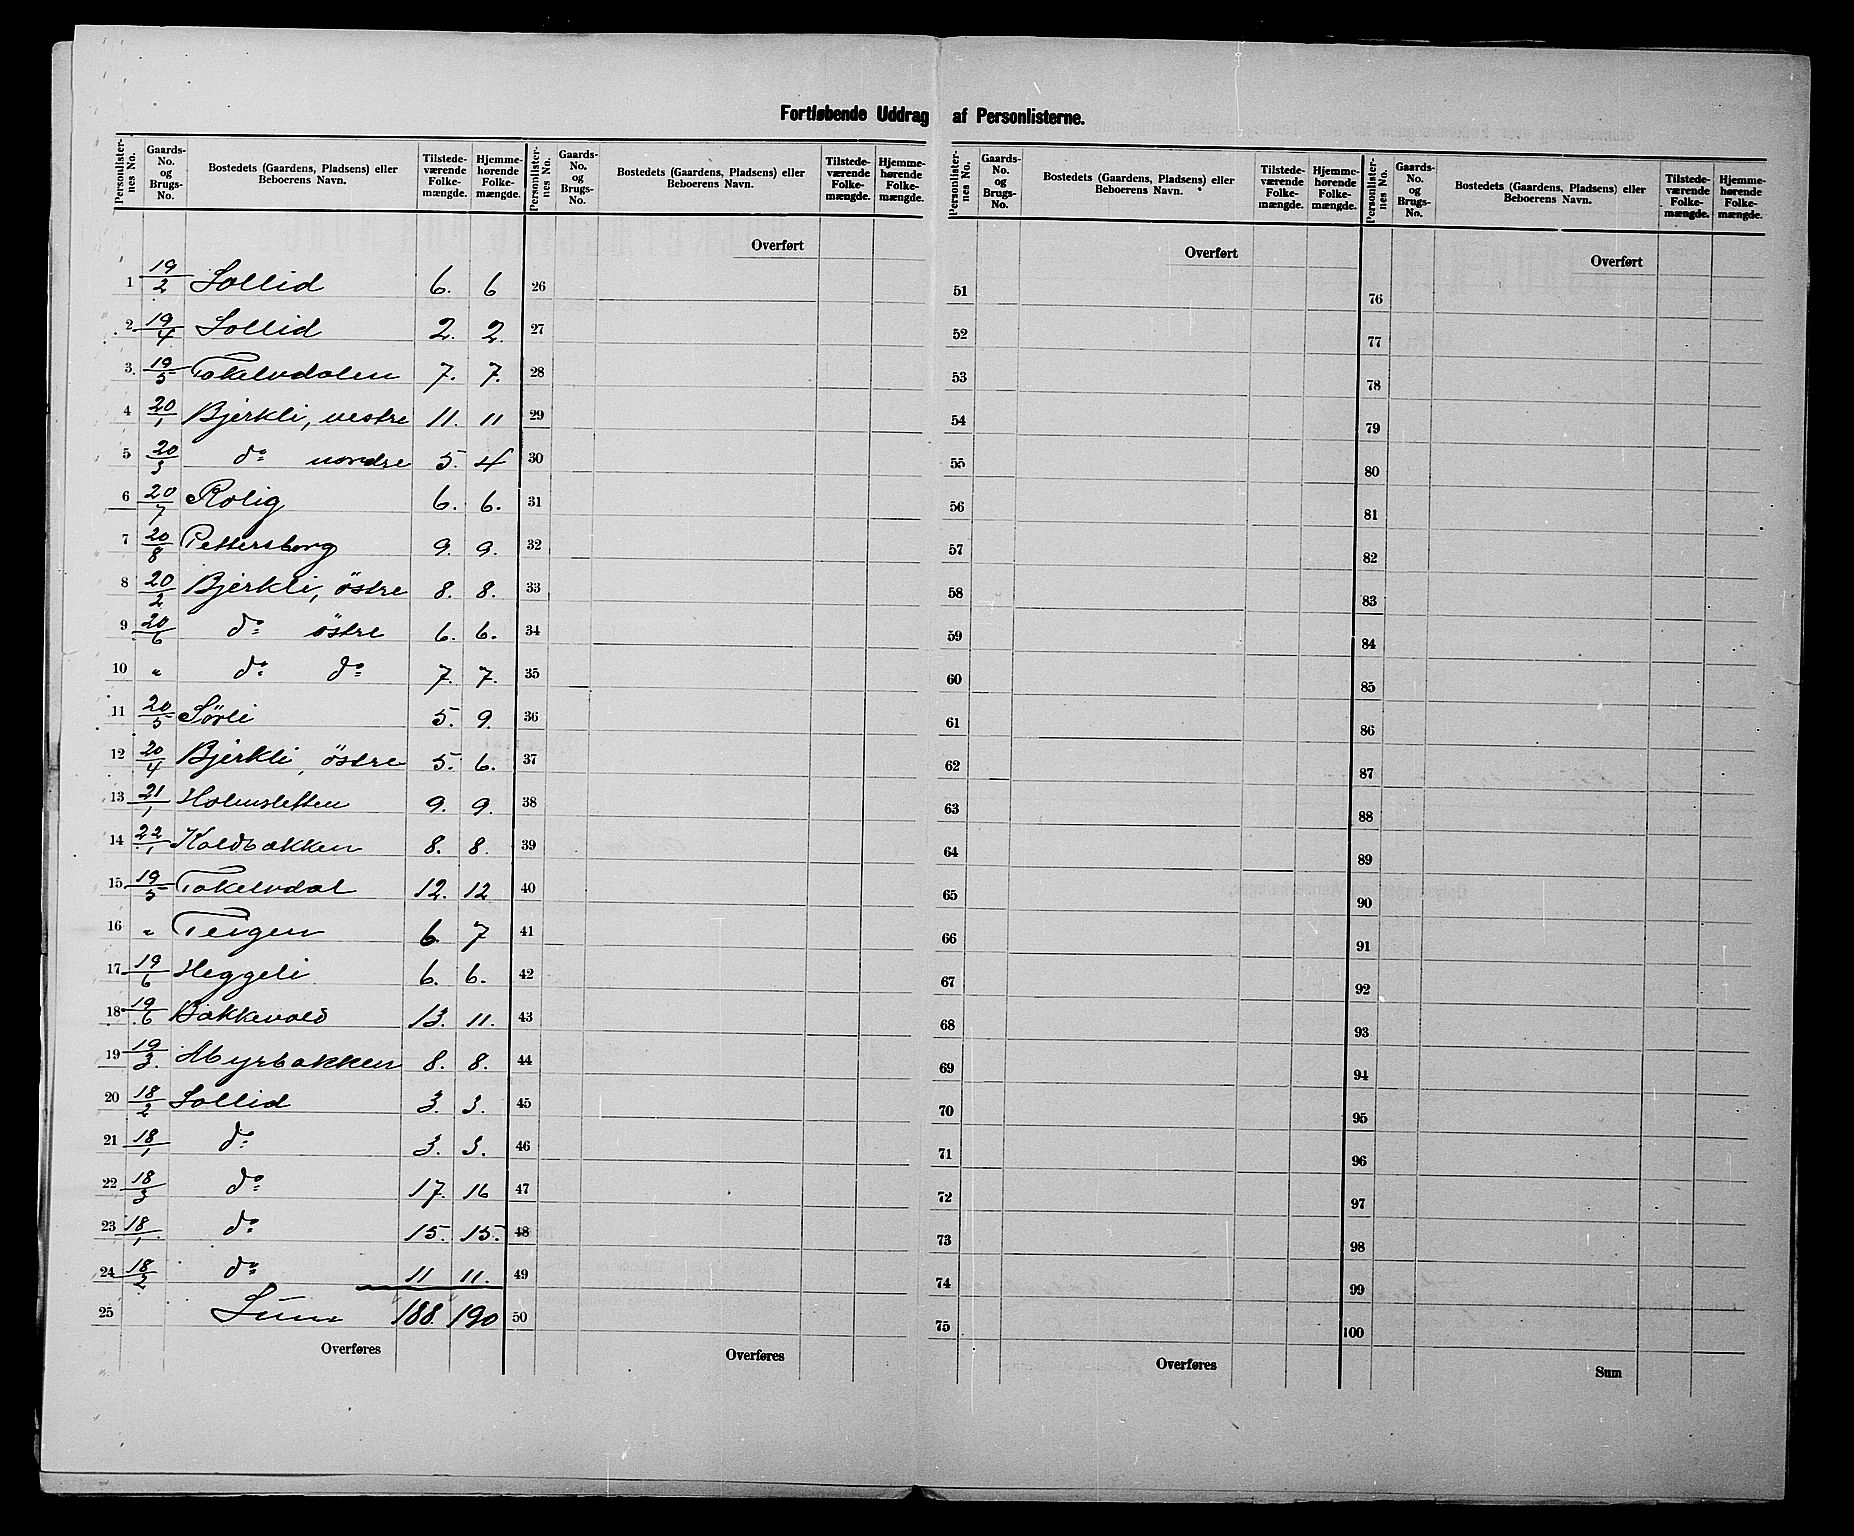 Fortløbende Uddrag af Personlisterne.
Personlister-nes No. | Gaards-No. og Brugs-No. | Bostedets (Gaardens, Pladsens) eller Beboerens Navn. | Tilstede-værende Folke-mængde. | Hjemme-hørende Folke-mængde.
Personlister-nes No. | Gaards-No. og Brugs-No. | Bostedets (Gaardens, Pladsens) eller Beboerens Navn. | Tilstede-værende Folke-mængde. | Hjemme-hørende Folke-mængde.
Personlister-nes No. | Gaards-No. og Brugs-No. | Bostedets (Gaardens, Pladsens) eller Beboerens Navn. | Tilstede-værende Folke-mængde. | Hjemme-hørende Folke-mængde.
Personlister-nes No. | Gaards-No. og Brugs-No. | Bostedets (Gaardens, Pladsens) eller Beboerens Navn. | Tilstede-værende Folke-mængde. | Hjemme-hørende Folke-mængde.
1 19/2 Sollid 6. 6
2 19/4 Sollid 2. 2.
3 19/5 Takelvdalen 7. 7.
4 20/1 Bjerkli, vestre 11. 11
5 20/3 do nordre 5. 4
6 20/7 Rolig 6. 6.
7 20/8 Pettersborg 9. 9.
8 20/2 Bjerkli, östre 8. 8.
9 20/6 do östre 6. 6.
10 " do do 7. 7.
11 20/5 Sörli 5. 9.
12 20/4 Bjerkli, östre 5. 6.
13 21/1 Holmsletten 9. 9.
14 22/1 Koldbakken 8. 8.
15 19/5 Takelvdal 12. 12
16 " Teigen 6. 7
17 19/6 Heggeli 6. 6.
18 19/6 Bakkevold 13. 11.
19 19/3. Myrbakken 8. 8.
20 18/2 Sollid 3. 3.
21 18/1 do 3. 3.
22 18/3 do 17. 16
23 18/1 do 15. 15.
24 18/2 do 11 11.
25 Sum 188. 190
Overføres
Overført
26
27
28
29
30
31
32
33
34
35
36
37
38
39
40
41
42
43
44
45
46
47
48
49
50
Overføres
Overført
51
52
53
54
55
56
57
58
59
60
61
62
63
64
65
66
67
68
69
70
71
72
73
74
75
Overføres
Overført
76
77
78
79
80
81
82
83
84
85
86
87
88
89
90
91
92
93
94
95
96
97
98
99
100
Sum